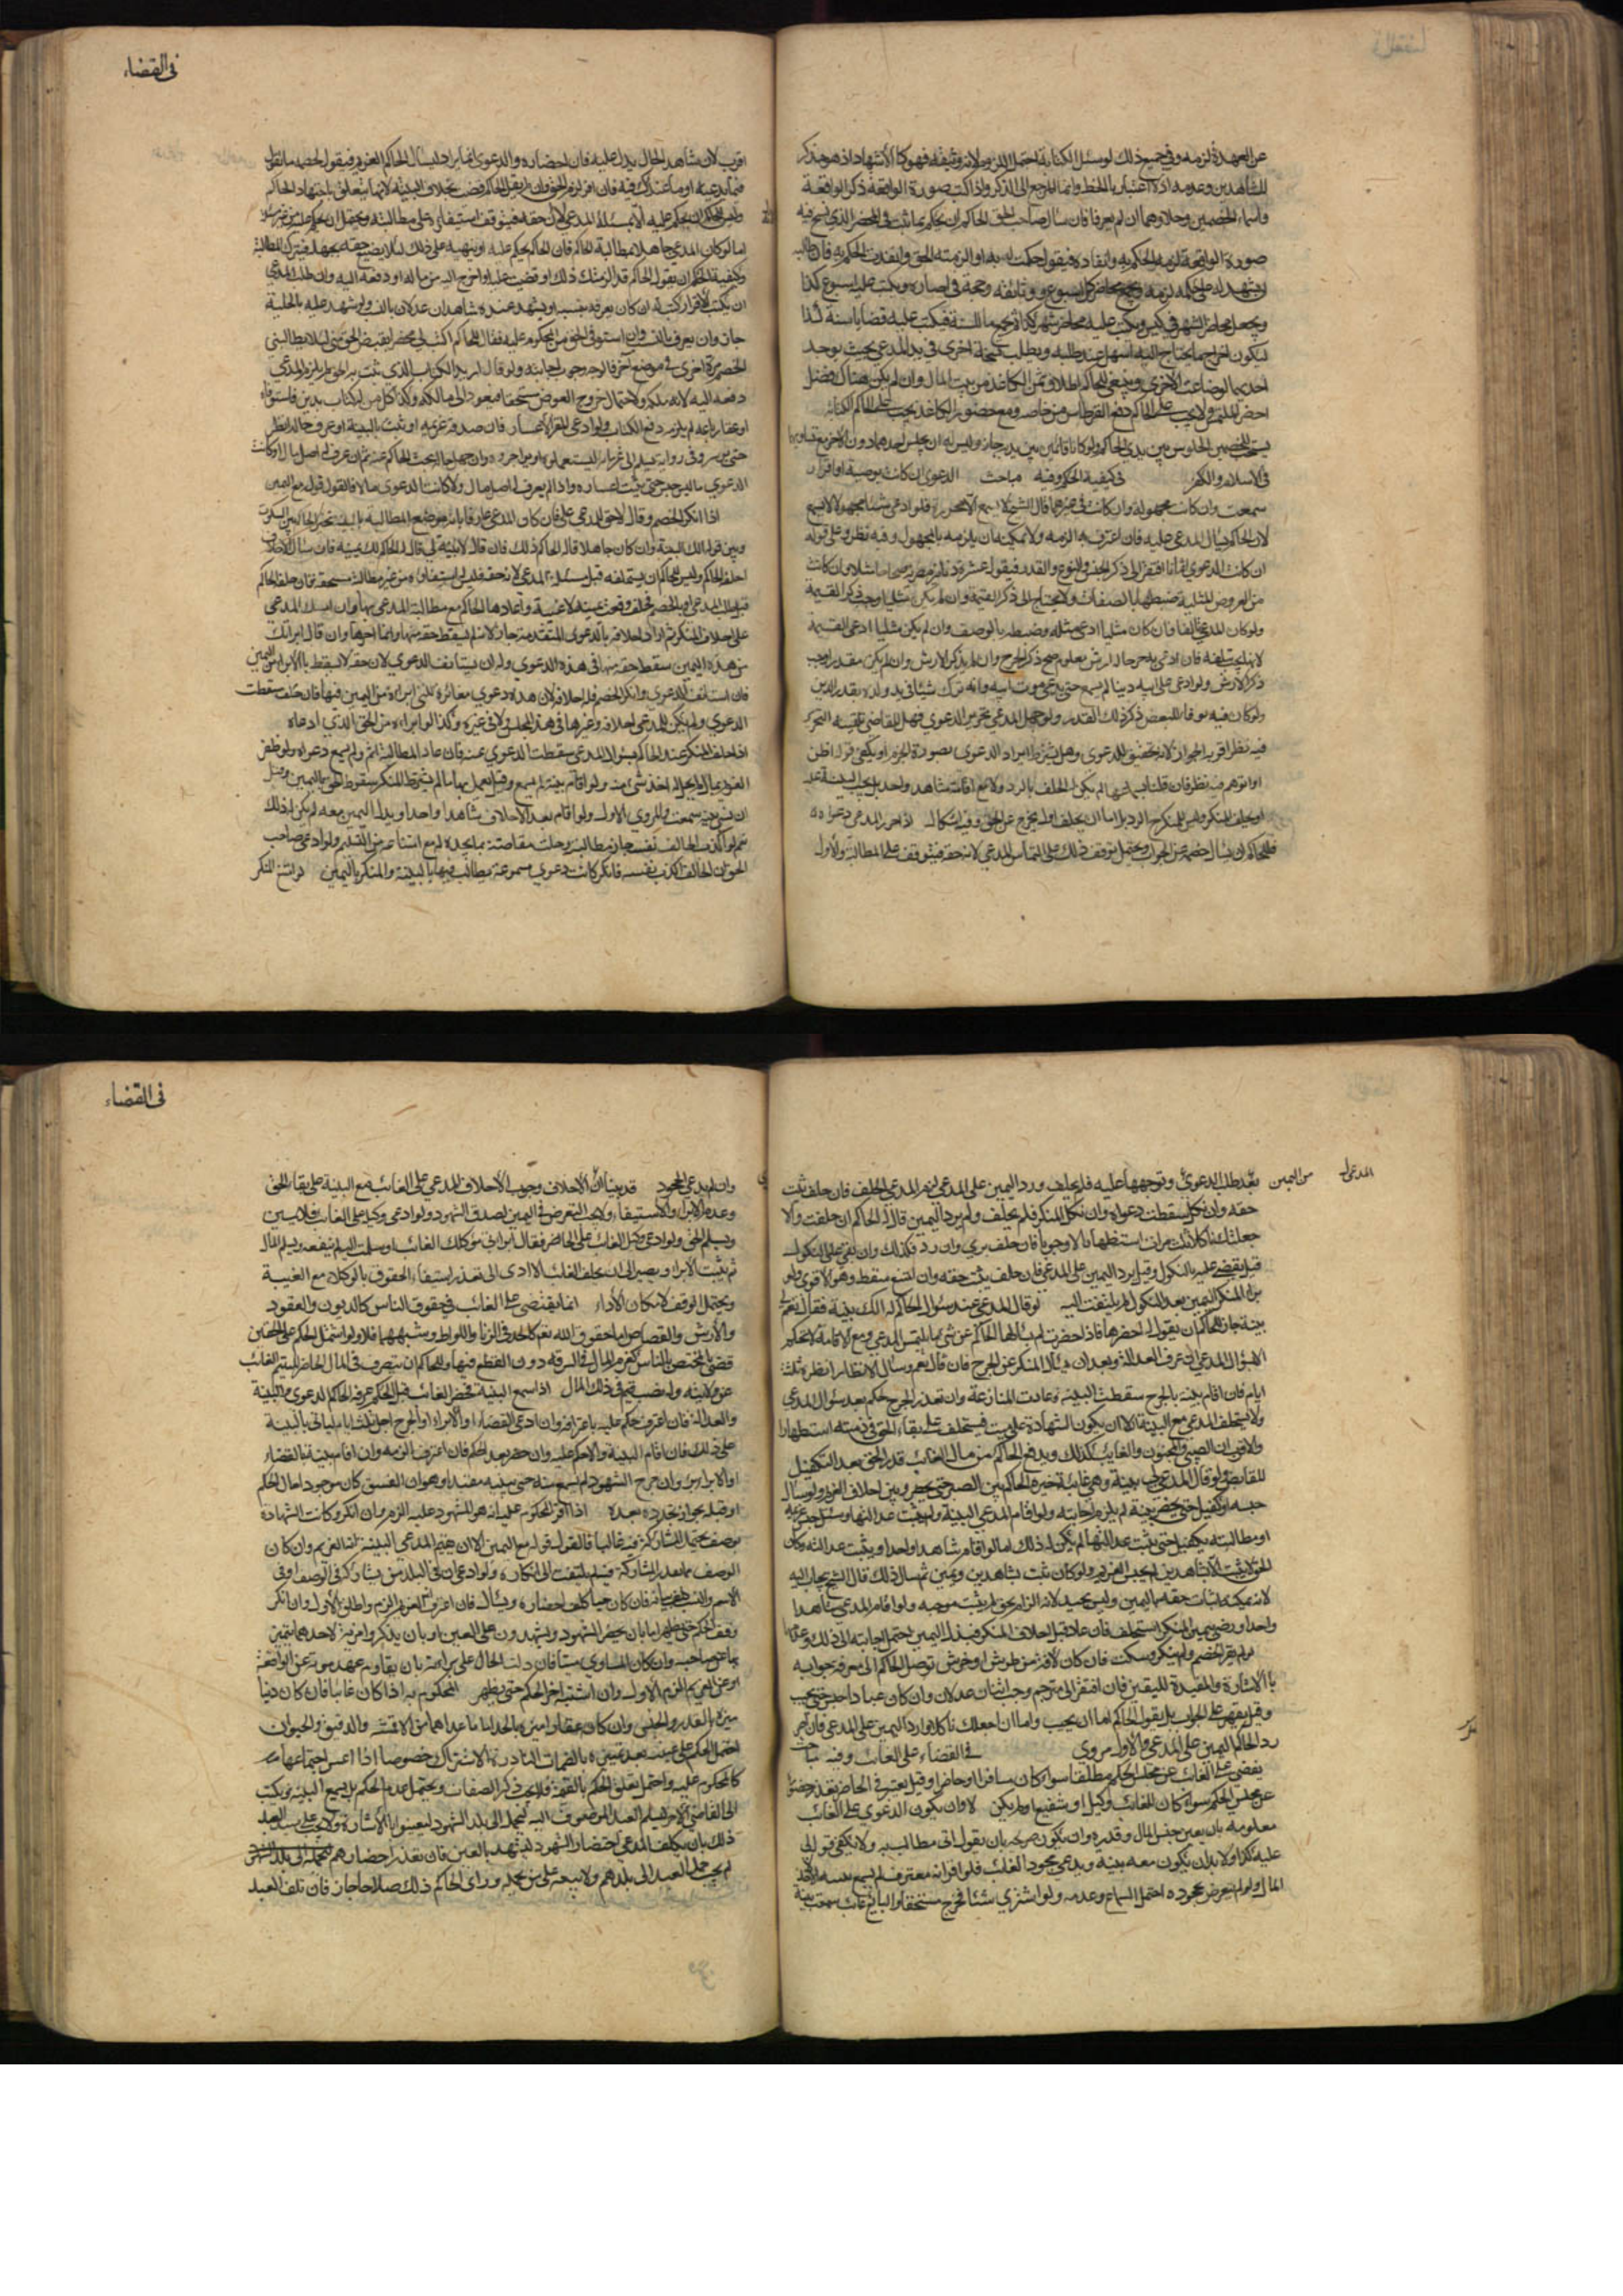 عن العهدة لزمه وفي جميع ذلك لو سئل الكتابة احتمل اللزوم لانه وثيقة فهو كالاشهاد اذ هو مذكر
للشاهدين وعدمه اذ لا اعتبار بالخط وانما المرجع الى الذكر واذا كتب صورة الواقعة ذكر الواقعة
واسماء الخصمين وحلاهما ان لم يعرفا فان سأل صاحب الحق الحاكم ان يحكم بما ثبت في المحضر الذي نسخ فيه
صورة الواقعة لزمه الحكم به وانفاده فيقول حكمت له به او الزمته الحق وانفذت الحكم به فان طالبه
ان يشهد له على حكمه لزمه ويجمع محاضر كل اسبوع ووثائقه وحجة في اضبارة ويكتب عليها اسبوع كذا
ويجعل محاضر الشهر في كيس ويكتب عليه محاضر شهر كذا ثم يجمع ما للسنة فيكتب عليه قضايا سنة كذا
ليكون اخراج ما يحتاج اليه اسهل عند طلبه ويطلب نسخة اخرى في يد المدعي بحيث يوجد
احديهما لو ضاعت الاخرى وينبغي للحاكم اطلاق ثمن الكاغذ من بيت المال وان لم يكن هناك فضل
احضر الملتمس ولا يجب على الحاكم دفع القرطاس من خاصه ومع حضور الكاغذ يجب على الحاكم الكتابة
يستحب للخصمين الجلوس بين يدي الحاكم ولو كانا قائمين بين يديه جاز وليس له ان يجلس احدهما دون الاخر مع تساويهما
في الاسلام والكفر في كيفية الحكم وفيه مباحث الدعوى ان كانت بوصية او اقرار
سمعت وان كانت مجهولة وان كانت في غيرهما قال الشيخ لا تسمع الا محررة فلو ادعى شيئا مجهولا لا تسمع
لان الحاكم يسأل المدعى عليه فان اعترف به الزمه ولا يمكنه ان يلزمه بالمجهول وفيه نظر وعلى قوله
ان كانت الدعوى اثمانا افتقر الى ذكر الجنس والنوع والقدر فيقول عشرة دنانير
من العروض المثلية ضبطها بالصفات ولا يحتاج الى ذكر القيمة وان لم يكن مثليا وجب ذكر القيمة
ولو كان المدعى تالفا فان كان مثليا ادعى مثله وضبطه بالوصف وان لم يكن مثليا ادعى القيمة
لانها يجب تلفه فان ادعى جرحا له ارش معلوم صح ذكر الجرح وان لم يذكر الارش وان لم يكن مقدرا وجب
ذكر الارش ولو ادعى على ابيه دينا لم يسمع حتى يدعي موت ابيه وانه ترك شيئا في يد ولده بقدر الدين
ولو كان فيه وفاء لبعض ذكر ذلك القدر ولو جهل المدعي تحرير الدعوى فهل للقاضي تلقينه التحرير
فيه نظر اقربه الجواز لانه تحقيق للدعوى وهل يشترط ايراد الدعوى بصورة الجزم او يكفي قوله اظن
او اتوهم فيه نظر فان قلنا لم يكن له الحلف بالرد ولا مع اقامته شاهد واحد بل يجب البينة عليه
او يحلف المنكر وليس للمنكر الرد بل اما ان يحلف او يخرج عن الحق وفيه اشكال اذا حرر المدعي دعواه
فللحاكم ان يسأل خصمه عن الجواب ويحتمل توقف ذلك على التماس المدعي لانه حقه فيتوقف على المطالبة والاول
في القضاء
اقرب لان شاهد الحال يدل عليه فان احضاره والدعوى انما يراد ليسأل الحاكم الغريم فيقول لخصمه ما تقول
فيما يدعيه او ما عندك فيه فان اقر لزم الحق وان لم يقل الحاكم قضيت بخلاف البينة لانها يتعلق باجتهاد الحاكم
وليس للحاكم ان يحكم عليه الا بمسئلة المدعي لان حقه فيتوقف استيفاؤه على مطالبته ويحتمل ان يحكم من غير مسئلة
اما لو كان المدعي جاهلا بمطالبة الحاكم فان الحاكم يحكم عليه او ينبهه على ذلك لئلا يضيع حقه بجهله فيترك المطالبة
وكيفية الحكم ان يقول الحاكم قد الزمتك ذلك او قضيت عليك او اخرج اليه من ماله او دفعه اليه وان طلب المدعي
ان يكتب له الاقرار كتبه له ان كان يعرفه بنفسه او يشهد عنده شاهدان عدلان بالنسب ولو شهد عليه بالحلية
جاز وان يعرف بالنسب وان استوفى الحق من المحكوم عليه فقال للحاكم اكتب لي محضرا بقبض الحق مني لئلا يطالبني
الخصم مرة اخرى في موضع اخر فالوجه وجوب اجابته ولو قال اريد الكتاب الذي ثبت به الحق لم يلزم المدعي
دفعه اليه لانه ملكه ولاحتمال خروج العوض مستحقا فيعود الى ماله وكذا كل من له كتاب بدين فاستوفاه
او عقار باعه لم يلزمه دفع الكتاب ولو ادعى المقر الاعسار فان صدقه غريمه او ثبت بالبينة او عرف حاله انظر
حتى يوسر وفي رواية يسلم الى غرمائه ليستعملوه او يواجروه وان جهل حاله بحث الحاكم عنه فان عرف له اصل مال او كانت
الدعوى مالا حبس حتى يثبت اعساره واذا لم يعرف له اصل مال ولا كانت الدعوى مالا فالقول قوله مع اليمين
اذا انكر الخصم وقال لا حق للمدعي علي فان كان المدعي عارفا بانه موضع المطالبة بالبينة تخير الحاكم بين السكوت
وبين قوله الك البينة وان كان جاهلا قال له الحاكم ذلك فان قال لا بينة لي قال له الحاكم لك يمينه فان سأل الاحلاف
احلفه الحاكم وليس للحاكم ان يستحلفه قبل مسئلة المدعي لانه حقه فليس له استيفاؤه من غير مطالبة مستحقه فان حلفه الحاكم
قبل سؤال المدعي او بادر الخصم فحلف وقعت يمينه لاغية واعادها الحاكم مع مطالبة المدعي بها وان امسك المدعي
على احلاف المنكر ثم اراد احلافه بالدعوى المتقدمة جاز لانه لم يسقط حقه منها وانما اخرها وان قال ابرأتك
من هذه اليمين سقط حقه منها في هذه الدعوى وله ان يستأنف الدعوى لان حقه لا يسقط بالابراء من اليمين
فان استأنف الدعوى وانكر الخصم فله احلافه لان هذه دعوى مغايرة للتي ابراه من اليمين فيها فان حلف سقطت
الدعوى ولم يكن للمدعي احلافه وغيرها في هذا المجلس ولا في غيره وكذا لو ابراه من الحق الذي ادعاه
اذا حلف المنكر عند الحاكم بسؤال المدعي سقطت الدعوى عنه فان عاد المطالبة اثم ولم يسمع دعواه ولو ظفر
الغريم بماله لم يحل له اخذ شيء منه ولو اقام بينة لم تسمع وقيل يعمل بها ما لم يشترط المنكر سقوط الحق باليمين وقيل
ان نسي بينته سمعت والمروي الاول ولو اقام بعد الاحلاف شاهدا واحدا وبذل اليمين معه لم يكن له ذلك
نعم لو اكذب الحالف نفسه جاز مطالبته وحلت مقاصته بما يجده له مع امتناعه من التسليم ولو ادعى صاحب
الحق ان الحالف اكذب نفسه فانكر كانت دعوى مسموعة يطالب فيها بالبينة والمنكر باليمين لو امتنع المنكر
المدعى له من اليمين بعد طلب الدعوى وتوجهها عليه فلم يحلف ورد اليمين على المدعي لزم المدعي الحلف فان حلف ثبت
حقه وان نكل سقطت دعواه وان نكل المنكر فلم يحلف ولم يرد اليمين قال له الحاكم ان حلفت والا
جعلتك ناكلا ثلاث مرات استظهارا لا وجوبا فان حلف بري وان رد فكذلك وان بقي على النكول
قيل يقضي عليه بالنكول وقيل يرد اليمين على المدعي فان حلف يثبت حقه وان امتنع سقط وهو الاقوى ولو
بذل المنكر اليمين بعد النكول لم يلتفت اليه لو قال المدعي عند سؤال الحاكم له الك بينة فقال نعم لي
بينة جاز للحاكم ان يقول له احضرها فاذا حضرت لم يسألها الحاكم عن شيء ما لم يلتمس المدعي ومع الاقامة لا يحكم
الا بسؤال المدعي ان عرف العدالة وبعد ان يسأل المنكر عن الجرح فان قال نعم وسأل الانظار انظره ثلثة
ايام فان اقام بينة بالجرح سقطت البينة وعادت المنازعة وان تعذر الجرح حكم بعد سؤال المدعي
ولا يستحلف المدعي مع البينة الا ان يكون الشهادة على ميت فيستحلف على بقاء الحق في ذمته استظهارا
والاقوى ان الصبي والمجنون والغائب كذلك ويدفع الحاكم من مال الغائب قدر الحق بعد التكفيل
للقابض ولو قال المدعي لي بينة وهي غائبة تخيره الحاكم بين الصبر حتى يحضر وبين احلاف الغريم ولو سأل
حبسه او كفيلا حتى يحضر بينة لم يلزم اجابته ولو اقام المدعي البينة ولم يثبت عدالتها وسئل حبس غريمه
او مطالبته بكفيل حتى يثبت عدالتها لم يكن له ذلك اما لو اقام شاهدا واحدا ويثبت عدالته وكان
الحق لا يثبت الا بشاهدين لم يحبس الغريم ولو كان ثبت بشاهدين ويمين ثم سأل ذلك قال الشيخ يجاب اليه
لانه يمكنه اثبات حقه باليمين وليس بجيد لانه الزام بحق لم يثبت موجبه ولو اقام المدعي شاهدا
واحدا ورضي بيمين المنكر استحلف فان عاد قبل احلاف المنكر فبذل اليمين احتمل اجابته الى ذلك وعدمها
لو لم يقر الخصم ولم ينكر وسكت فان كان لافة من طرش او خرس توصل الحاكم الى معرفة جوابه
بالاشارة والمفيدة لليقين فان افتقر الى مترجم وجب اثنان عدلان وان كان عنادا حبس حتى يجيب
وقيل يقهر على الجواب بل يقول الحاكم اما ان يجيب واما ان اجعلك ناكلا وارد اليمين على المدعي فان اصر
رد الحاكم اليمين على المدعي والاول مروي في القضاء على الغائب وفيه مباحث
يقضي على الغائب عن مجلس الحكم مطلقا سواء كان مسافرا او حاضرا وقيل يعتبر في الحاضر تعذر حضوره
عن مجلس الحكم سواء كان للغائب وكيل او شفيع او لم يكن لا وان يكون الدعوى على الغائب
معلومة بان يعين جنس المال وقدره وان يكون صريحة بان يقول اني مطالب به ولا يكفي قوله لي
عليه كذا ولا بد ان يكون معه بينة ويدعي جحود الغائب فلو اقر انه معترف لم يسمع بينته الا لاخذ
المال ولو لم يتعرض لجحوده احتمل السماع وعدمه ولو اشترى شيئا فخرج مستحقا والبائع غائب سمعت بينته
في القضاء
وان لم يدعي الجحود قد بينا ان الاحلاف وجوب الاحلاف للمدعي على الغائب مع البينة على بقاء الحق
وعدم الابراء والاستيفاء ولا يجب التعرض في اليمين لصدق الشهود ولو ادعى وكيل على الغائب فلا يمين
ويسلم الحق ولو ادعى وكيل الغائب على الحاضر فقال ابراني موكلك الغائب او سلمت اليه لم ينفعه ويسلم المال
ثم يثبت الابراء ويصير الى ان يحلف الغائب والا ادى الى تعذر استيفاء الحقوق بالوكلاء مع الغيبة
ويحتمل الوقف لامكان الاداء انما يقضى على الغائب في حقوق الناس كالديون والعقود
والارش والقصاص اما حقوق الله نعم كالحد في الزنا واللواط وشبههما فلا ولو اشتمل الحكم على الحقين
قضى بما يختص بالناس كغرم المال في السرقة دون القطع فيها وللحاكم ان يتصرف في المال الحاضر ليتيم الغائب
عن ولايته وله نصب قيم في ذلك المال اذا سمع البينة فحضر الغائب قبل الحكم عرفه الحاكم الدعوى والبينة
والعدالة فان اعترف حكم عليه باعترافه وان ادعى القضاء او الابراء او الجرح اجل ثلثة ايام لياتي بالبينة
على ذلك فان اقام البينة والا حكم عليه وان حضر بعد الحكم فان اعترف الزمه وان اقام بينة بالقضاء
او الابراء برئ وان جرح الشهود لم تسمع منه حتى يبينه مقيدا وهو ان الفسق كان موجودا حال الحكم
او قبله بجواز تجدده بعده اذا اقر المحكوم عليه انه هو المشهود عليه الزم وان انكر وكانت الشهادة
بوصف يحتمل المشاركة فيه غالبا فالقول قوله مع اليمين الا ان يقيم المدعي البينة انه الغريم وان كان
الوصف مما يعدم المشاركة فيه لم يلتفت الى انكاره ولو ادعى ان في البلد من يشاركه في الوصف او في
الاسم والنسب كلف بيانه فان كان حيا كلف احضاره ويسأل فان اعترف انه الغريم الزم واطلق الاول وان انكر
وقف الحكم حتى يظهر اما بان يحضر الشهود ويشهدون على العين او بان يذكروا مزية لاحدهما تميز
بها عن صاحبه وان كان المساوي ميتا فان دلت الحال على براءته بان يقاوم عهد موته عن الواقعة
او عن الغريم الزم الاول وان اشتبه اخر الحكم حتى يظهر المحكوم به اذا كان غائبا فان كان دينا
ميزه بالقدر والجنس وان كان عقارا ميزه بالحد اما ما عداهما من الاقمشة والدقيق والحيوان
احتمل الحكم على عينه بعد تمييزه بالصفات النادر بها الاشتراك خصوصا اذا اعسر اجتماعها
كالمحكوم عليه واحتمل تعلق الحكم بالقيمة فلا يجب ذكر الصفات ويحتمل عدم الحكم بل يسمع البينة ويكتب
الى القاضي الاخر ليسلم العبد الموصوف اليه ليحمله الى بلد الشهود ليعينوا بالاشارة ولا يجب على سيد العبد
ذلك بان يكلف المدعي احتضار الشهود ليشهد بالعين فان تعذر احضارهم
لم يجب حمل العبد الى بلدهم ولا بيعه على من يحمله ورأى الحاكم ذلك صلاحا جاز فان تلف العبد